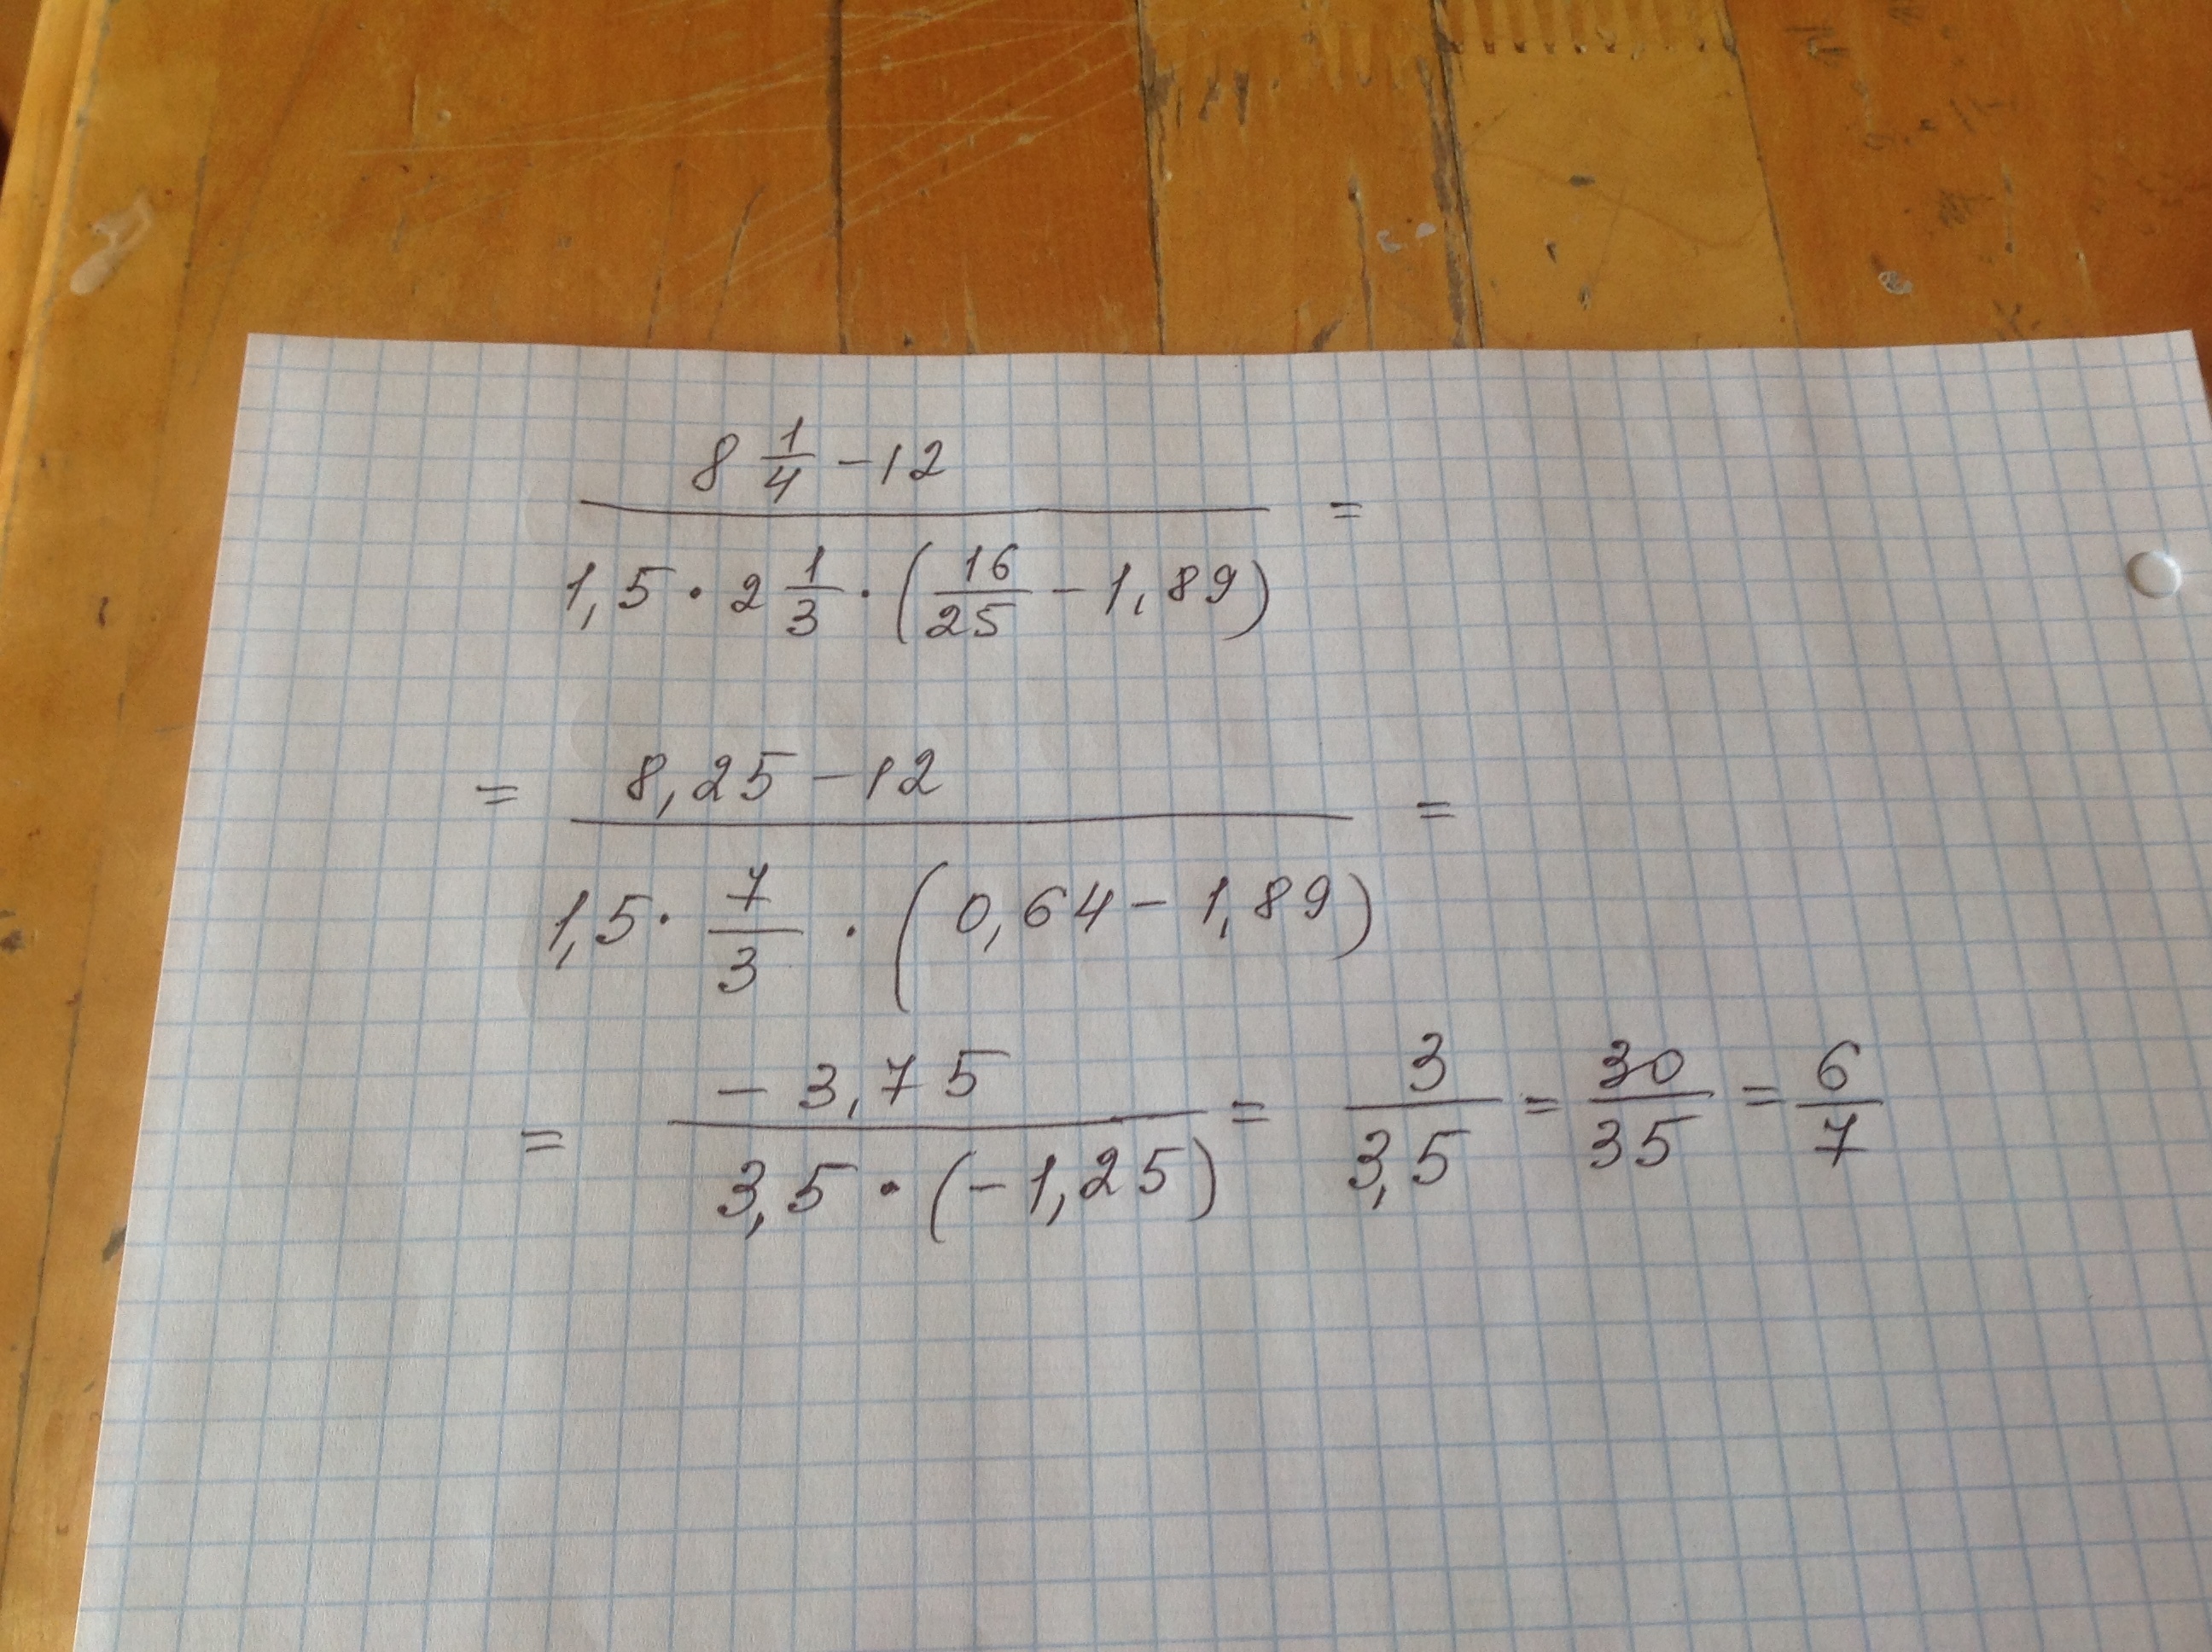 8 1/4 - 12
=
1,5 · 2 1/3 · (16/25 - 1,89)
= 8,25 - 12 =
1,5 · 7/3 · (0,64 - 1,89)
= -3,75 = 3 = 30 = 6
3,5 · (-1,25) 3,5 35 7